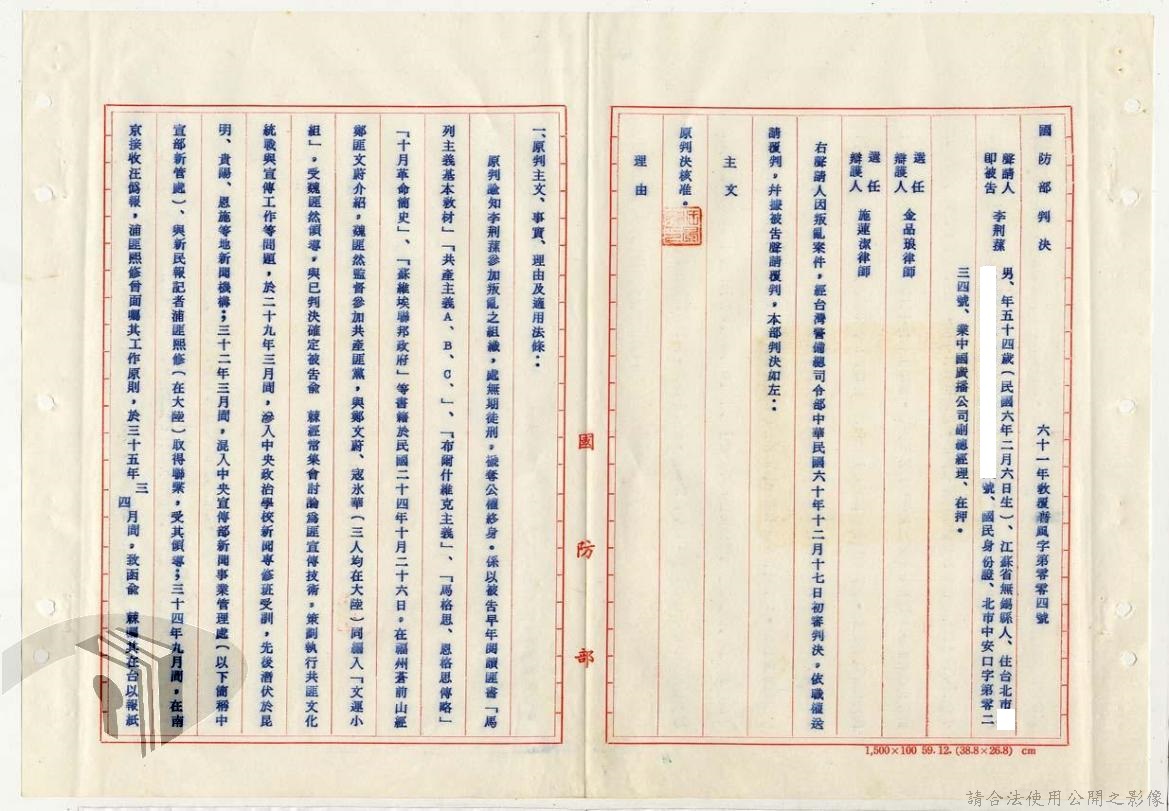 國防部判決
六十一年教覆普風字第零零四號
聲請人
即被告
李荆蓀
男、年五十四歲（民國六年二月六日生）、江蘇省無錫縣人、住台北市
號、國民身份證、北市中安口字第零二
三四號、業中國廣播公司副總經理、在押。
選任
辯護人
金品琅律師
選任
辯護人
施蓮潔律師
右聲請人因叛亂案件，經台灣警備總司令部中華民國六十年十二月十七日初審判決，依職權送
請覆判，幷據被告聲請覆判，本部判決如左：
主文
原判決核准。
理由
國防部
一、原判主文、事實、理由及適用法條：
原判諭知李荆蓀參加叛亂之組織，處無期徒刑，褫奪公權終身。係以被告早年閱讀匪書「馬
列主義基本敎材」「共產主義A、B、C、」、「布爾什維克主義」、「馬格思、恩格思傳略」
「十月革命簡史」、「蘇維埃聯邦政府」等書籍於民國二十四年十月二十六日，在福州蒼前山經
鄭匪文蔚介紹，魏匪然監督參加共產匪黨，與鄭文蔚、寇冰華（三人均在大陸）同編入「文運小
組」，受魏匪然領導，與已判決確定被告兪　棘經常集會討論為匪宣傳技術，策劃執行共匪文化
統戰與宣傳工作等問題，於二十九年三月間，滲入中央政治學校新聞專修班受訓，先後潛伏於昆
明、貴陽、恩施等地新聞機構；三十二年三月間，混入中央宣傳部新聞事業管理處（以下簡稱中
宣部新管處）、與新民報記者浦匪熙修（在大陸）取得聯繫，受其領導；三十四年九月間，在南
京接收汪僞報，浦匪熙修曾面囑其工作原則，於三十五年三四月間，致函兪　棘囑其在台以報紙
1,500×100 59.12.(38.8×26.8) cm
請合法使用公開之影像